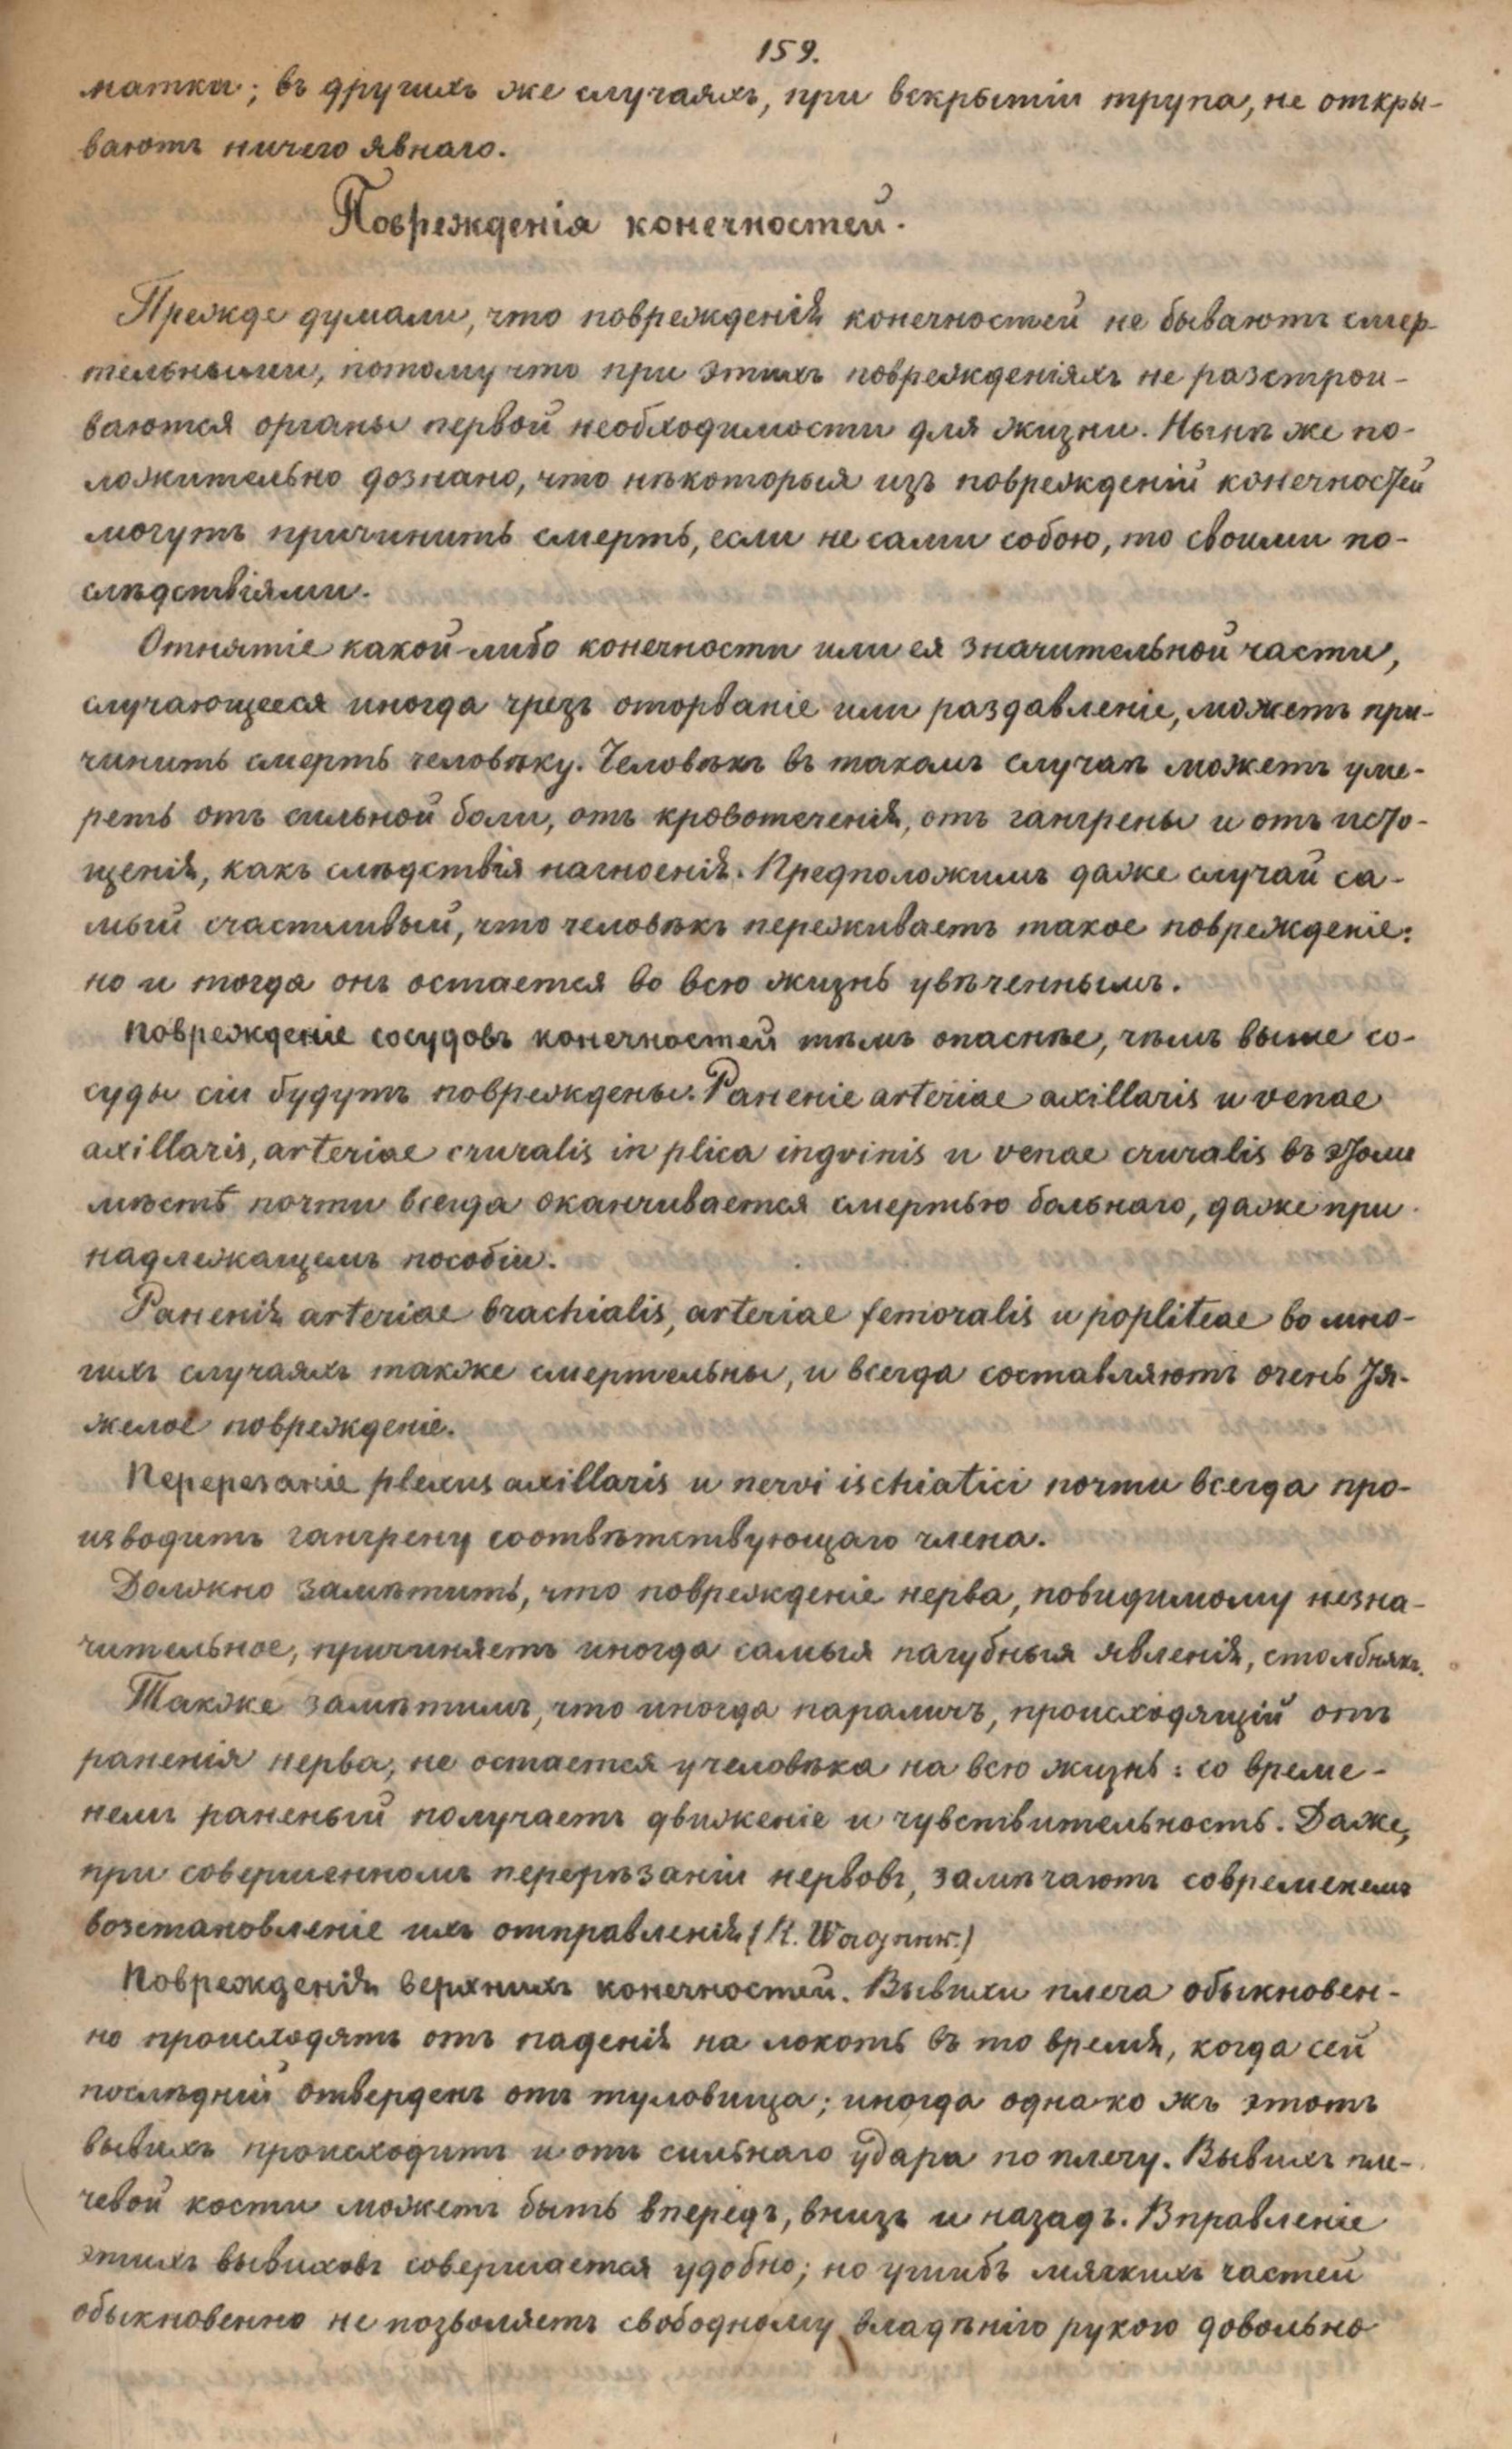 159.
матки; въ другихъ же случаяхъ, при вскрытіи трупа, не откры-
ваютъ ничего явнаго.
Поврежденія конечностей.
Прежде думали, что поврежденія конечностей не бываютъ смер-
тельными, потому что при этихъ поврежденіяхъ не разстрои-
ваются органы первой необходимости для жизни. Нынѣ же по-
ложительно дознано, что нѣкоторыя изъ поврежденій конечностей
могутъ причинить смерть, если не сами собою, то своими по-
слѣдствіями.
Отнятіе какой-либо конечности или ея значительной части,
случающееся иногда чрезъ оторваніе или раздавленіе, можетъ при-
чинить смерть человѣку. Человѣкъ въ такомъ случаѣ можетъ уме-
реть отъ сильной боли, отъ кровотеченія, отъ гангрены и отъ исто-
щенія, какъ слѣдствія нагноенія. Предположимъ даже случай са-
мый счастливый, что человѣкъ переживаетъ такое поврежденіе:
но и тогда онъ остается во всю жизнь увѣченнымъ.
Поврежденіе сосудовъ конечностей тѣмъ опаснѣе, чѣмъ выше со-
суды сіи будутъ повреждены. Раненіе arteriae axillaris и venae
axillaris, arteriae cruralis in plica ingvinis и venae cruralis въ этомъ
мѣстѣ почти всегда оканчивается смертью больнаго, даже при
надлежащемъ пособіи.
Раненія arteriae brachialis, arteriae femoralis и popliteae во мно-
гихъ случаяхъ также смертельны, и всегда составляютъ очень тя-
желое поврежденіе.
Перерезаніе plexus axillaris и nervi ischiatici почти всегда про-
изводитъ гангрену соотвѣтствующаго члена.
Должно замѣтить, что поврежденіе нерва, повидимому незна-
чительное, причиняетъ иногда самыя пагубныя явленія, столбнякъ.
Также замѣтимъ, что иногда параличъ, происходящій отъ
раненія нерва, не остается у человѣка на всю жизнь: со време-
немъ раненый получаетъ движеніе и чувствительность. Даже,
при совершенномъ перерѣзаніи нервовъ, замѣчаютъ современемъ
возстановленіе ихъ отправленія (R. Wagner.)
Поврежденія верхнихъ конечностей. Вывихи плеча обыкновен-
но происходятъ отъ паденія на локоть въ то время, когда сей
послѣдній отверденъ отъ туловища; иногда однако жъ этотъ
вывихъ происходитъ и отъ сильнаго удара по плечу. Вывихъ пле-
чевой кости можетъ быть впередъ, внизъ и назадъ. Вправленіе
этихъ вывиховъ совершается удобно; но ушибъ мягкихъ частей
обыкновенно не позволяетъ свободному владѣнію рукою довольно